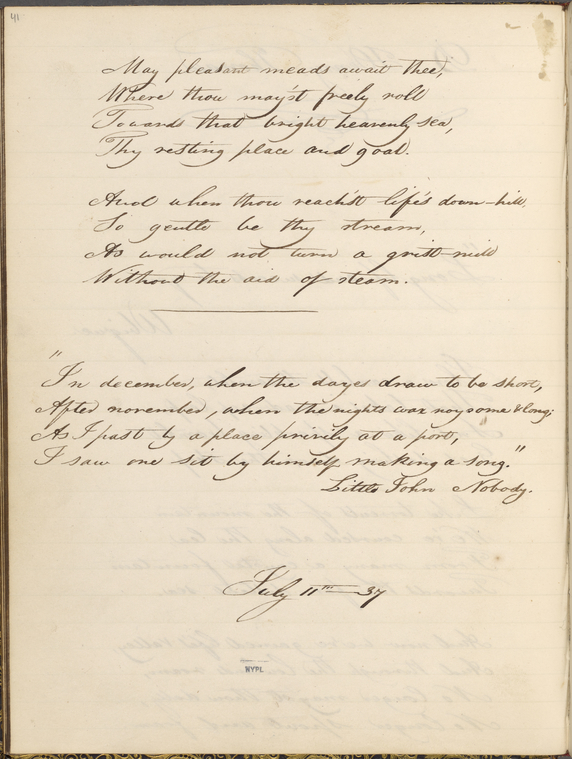 41
May pleasant meads await thee,
Where thou may'st freely roll
Towards that bright heavenly sea,
Thy resting place and goal.
And when thou reach'st life's down-hill,
So gentle be thy stream,
As would not turn a grist-mill
Without the aid of steam.
"In december, when the dayes draw to be short,
After november, when the nights wax noysome & long;
As I past by a place privily at a port,
I saw one sit by himself making a song."
Little John Nobody.
July 11th—37
NYPL